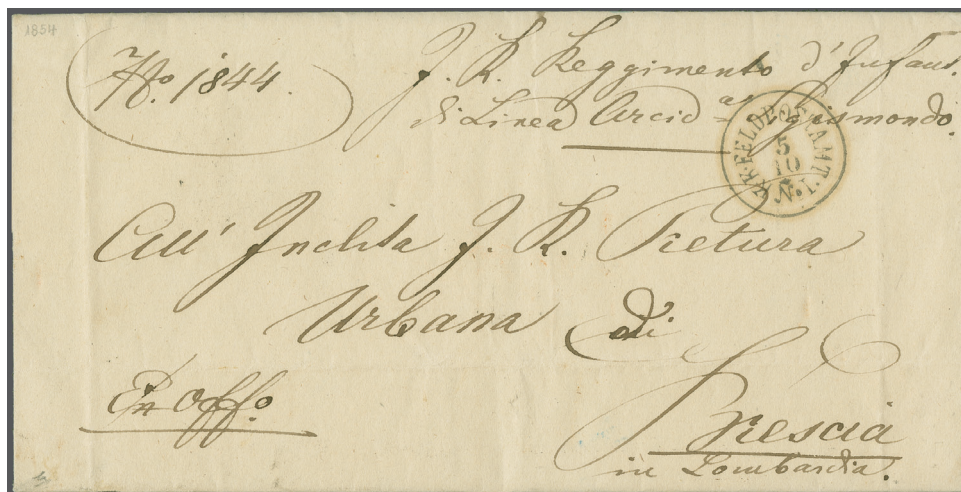 1854
No. 1844.
J. R. Reggimento d'Infant.
di Linea Arcid as Gismondo.
K.K. FELDPOSTAMT. N. I.
5
10
All' Inclita J. R. Pretura
Urbana di
Ex Offo.
Brescia
in Lombardia.